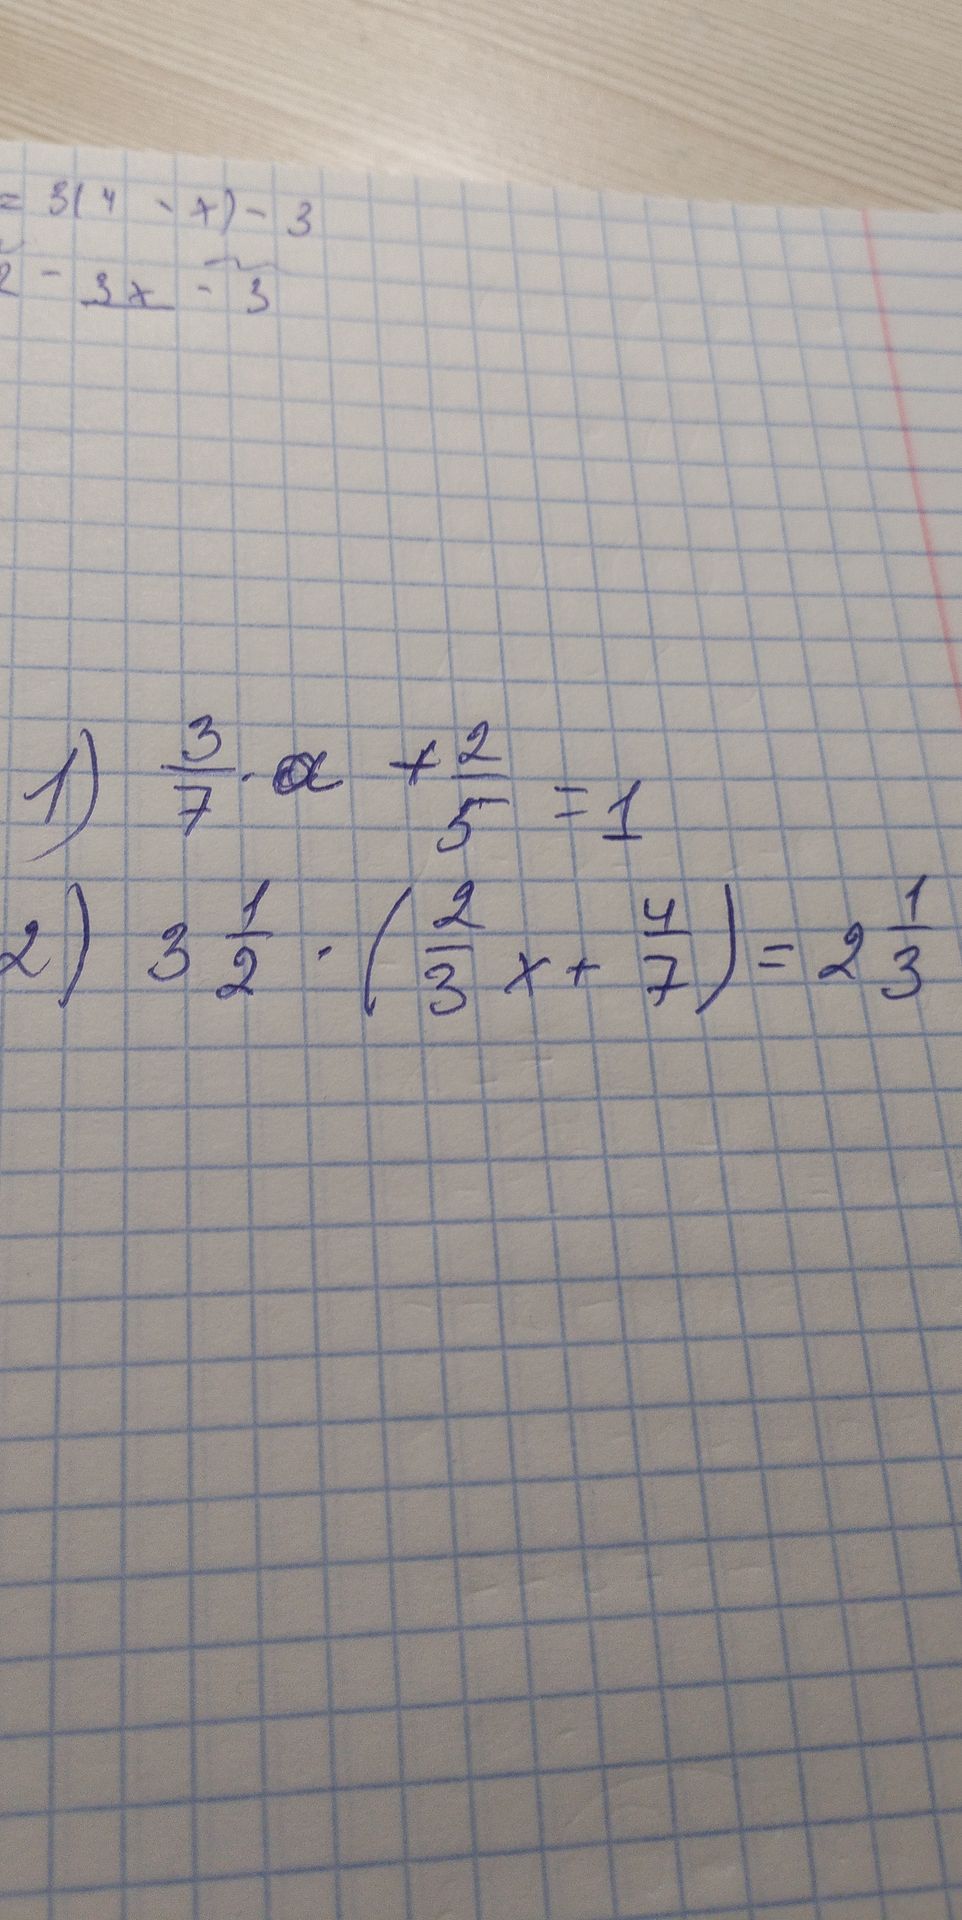 = 3(4 - x) - 3
2 - 3x - 3
1) 3/7 · a + 2/5 = 1
2) 3 1/2 · (2/3 x + 4/7) = 2 1/3